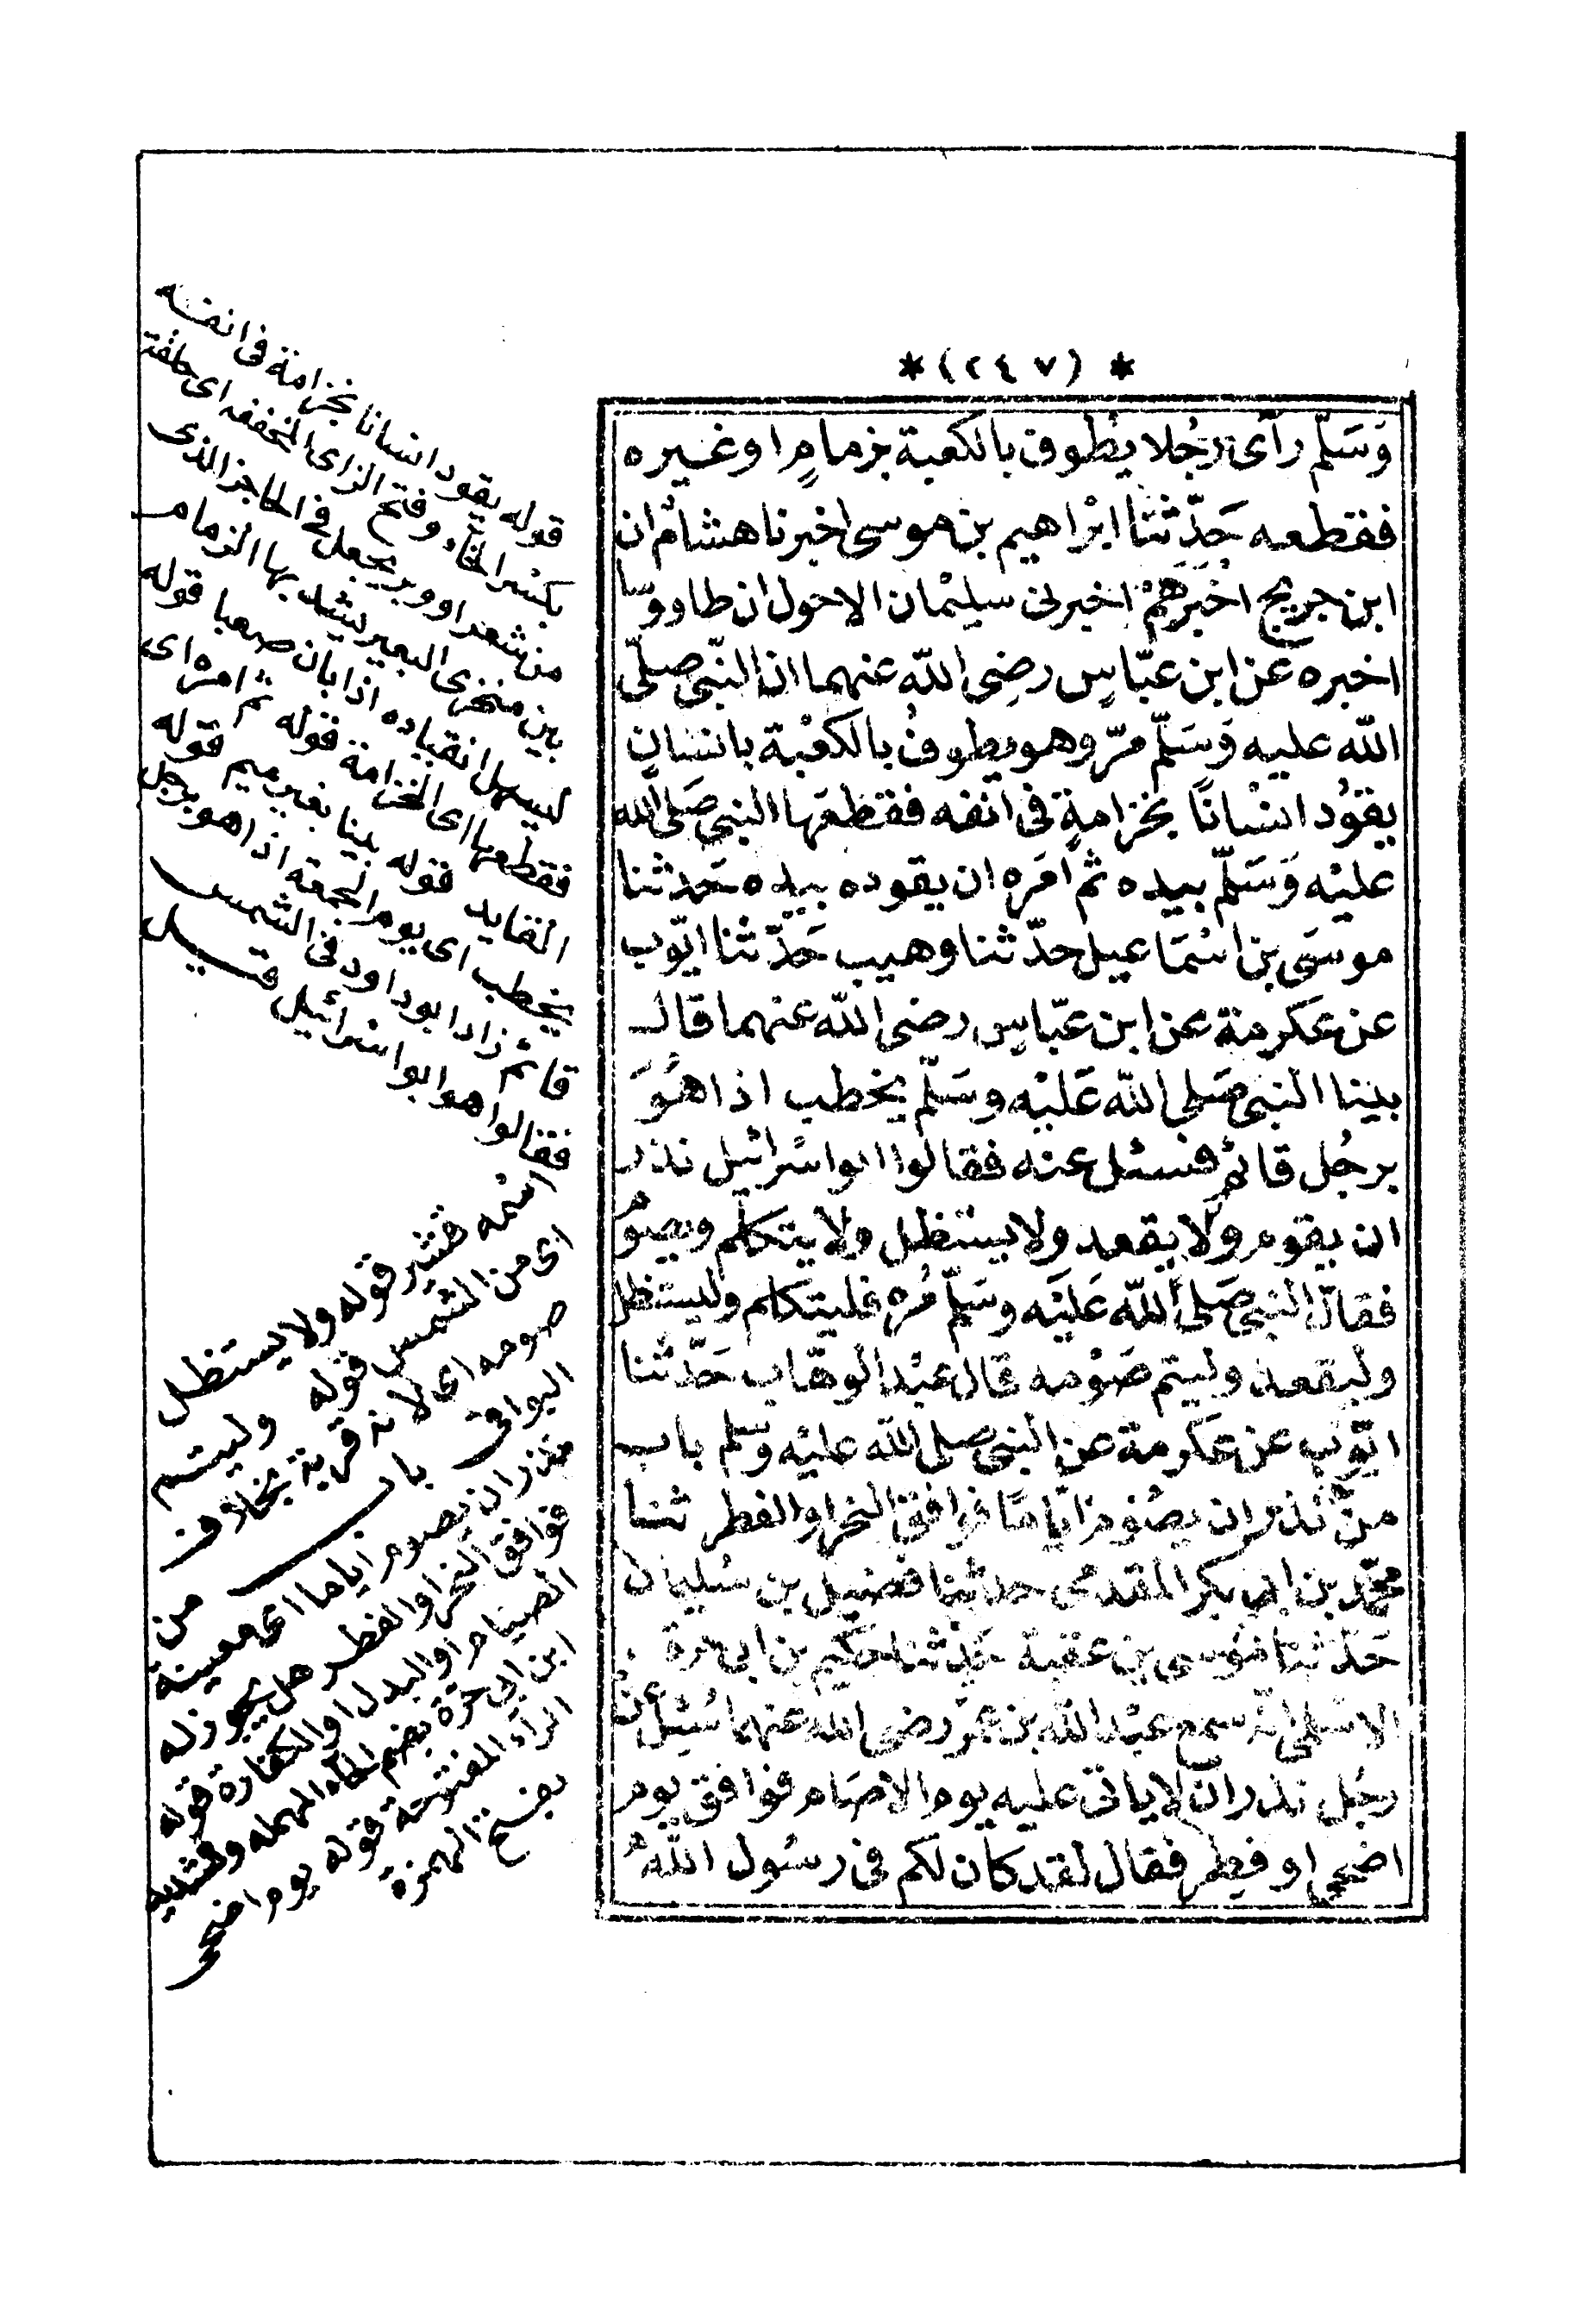 * (٢٤٧) *
وَسَلّم رأى رجُلا يطُوف بالكعبة بزمامٍ او غيره
فقطعه حَدّثنا ابْراهيم بن موسى اخبرنا هشام ان
ابن جريج اخْبَرهمْ اخبرنى سليْمان الاحول ان طاووسا
اخبره عَن ابن عبّاسٍ رضِى اللّه عنهما ان النّبى صلّى
اللّه عليه وَسَلّم مرّ وهو يطوفُ بالكعْبة بانسانٍ
يقوُد انسْانًا بخزامةٍ فى انفه فقطعَها النبى صَلى اللّه
عليْه وَسَلّم بيده ثم امَره ان يقوده بيدِه حَدثنا
موسَى بن اسْمَاعيل حدّثنا وهيب حَدّثنا ايّوب
عن عكرمة عن ابن عبّاسٍ رضى اللّه عنهما قال
بينا النبى صَلى اللّه عَليْه وسَلّم يخطب اذا هُوَ
برجُل قائم فسئل عنه فقالوا ابو اسْرائيل نذر
ان يقوم ولا يقعد ولا يستظل ولا يتكلم ويصومُ
فقال النبى صَلى اللّه عَليَه وسَلّم مُره فليتكلم وليستظل
وليقعد وليتم صَوْمه قال عبْد الوهّاب حَدّثنا
ايّوب عن عكرمة عن النبى صلى اللّه عليْه وسلم باب
منْ نذر ان يصُوم ايّامًا فوافق النحر او الفطر ثنا
محمّد بن ابى بكر المقدمى حدثنا فضيل بن سُليمان
حَدّثنا مُوسى بن عقبة حَدثنا حكيم بن ابى حرة
الاسْلمى انّه سمع عبْد اللّه بن عمرَ رضى اللّه عنهما سُئِل عن
رجُل نذر ان لا ياتى عليه يوم الا صَام فوافق يوم
اضحى او فِطر فقال لقد كان لكم فى رسُول اللّه
قوله يقود انسانا بخزامة فى انفه
بكسْر الخاء وفتح الزاى المخففه اى حلقة
من شعر او وبر يجعل فى الحاجز الذى
بين منخرى البعير ليشد بها الزمام
ليسهل انقياده اذا بان صعبا قوله
فقطعها اى الخزامة قوله ثم امره اى
القايد قوله بينا بغير ميم قوله
يخطب اى يوم الجمعة اذا هو برجل
قائم زاد ابو داود فى الشمس
فقالوا هو ابو اسْرائيل قيل
اسمه قشير قوله ولا يستظل
اى من الشمس قوله وليتم
صومه اى لانه قربة بخلاف
البواقى باب من
نذر ان يصوم اياما اى معينة
فوافق النحر او الفطر هل يجوز له
الصيام او البدل او الكفارة قوله
ابن ابى حرة بضم الحاء المهمله وتشديد
الراء المفتوحة قوله يوم اضحى
بفتح الهمزة